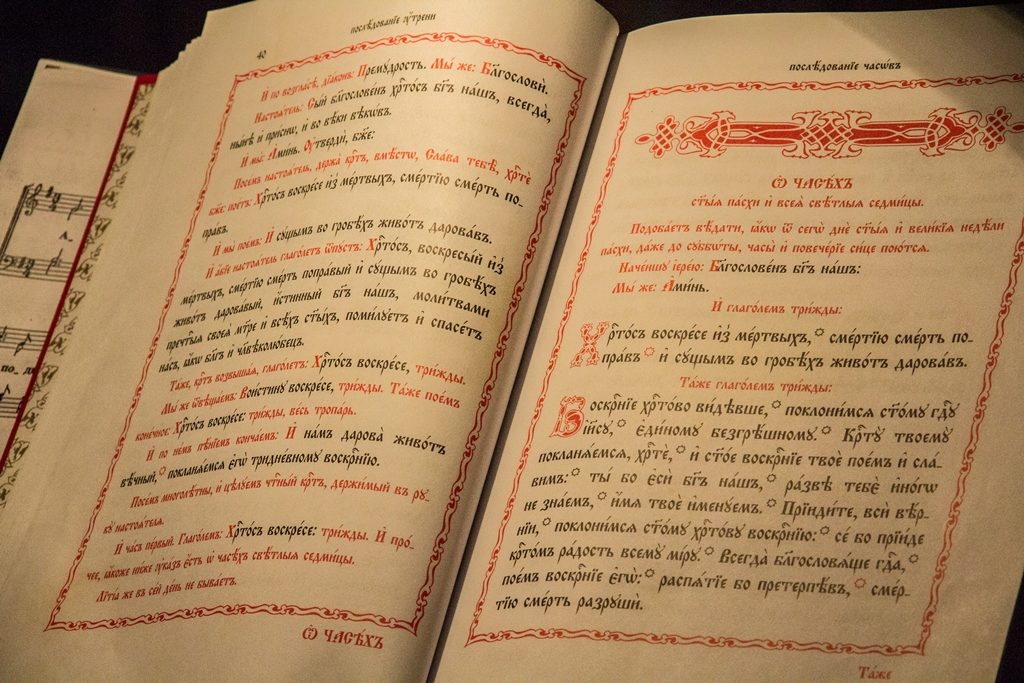 послѣ́дованїе ᲂу҆́трени
40
И҆ по во́згласѣ, дїа́конъ: Премꙋ́дрость. Мы́ же: Бл҃гословѝ.
Настоѧ́тель: Сы́й бл҃гослове́нъ хрⷭ҇то́съ бг҃ъ на́шъ, всегда̀,
ны́нѣ и҆ при́снѡ, и҆ во вѣ́ки вѣкѡ́въ.
И҆ мы̀: А҆ми́нь. Оу҆твердѝ, бж҃е:
Посе́мъ настоѧ́тель, держа̀ крⷭ҇тъ, вмѣ́стѡ, Сла́ва тебѣ̀, хрⷭ҇тѐ
бж҃е: пое́тъ: Хрⷭ҇то́съ воскре́се и҆з̾ ме́ртвыхъ, сме́ртїю сме́рть по-
пра́въ.
И҆ мы̀ пое́мъ: И҆ сꙋ́щымъ во гробѣ́хъ живо́тъ дарова́въ.
И҆ а҆́бїе настоѧ́тель глаго́летъ ѿпꙋ́стъ: Хрⷭ҇то́съ, воскресы́й и҆з̾
ме́ртвыхъ, сме́ртїю сме́рть попра́вый и҆ сꙋ́щымъ во гробѣ́хъ
живо́тъ дарова́вый, и҆́стинный бг҃ъ на́шъ, моли́твами
пречⷭ҇тыѧ своеѧ̀ мт҃ре и҆ всѣ́хъ ст҃ы́хъ, поми́лꙋетъ и҆ спасе́тъ
на́съ, ꙗ҆́кѡ бл҃гъ и҆ чл҃вѣколю́бецъ.
Та́же, крⷭ҇тъ возвыша́ѧ, глаго́летъ: Хрⷭ҇то́съ воскре́се, три́жды.
Мы́ же ѿвѣща́емъ: Вои́стинꙋ воскре́се, три́жды. Та́же пое́мъ
коне́чное: Хрⷭ҇то́съ воскре́се: три́жды, ве́сь тропа́рь.
И҆ по не́мъ пѣ́нїемъ конча́емъ: И҆ на́мъ дарова̀ живо́тъ
вѣ́чный, покланѧ́емсѧ є҆гѡ̀ тридне́вномꙋ воскрⷭ҇нїю.
Посе́мъ многолѣ́тны, и҆ цѣлꙋ́емъ чⷭ҇тны́й крⷭ҇тъ, держи́мый въ рꙋ-
кꙋ̀ настоѧ́телѧ.
И҆ ча́съ пе́рвый. Глаго́лемъ: Хрⷭ҇то́съ воскре́се: три́жды. И҆ про́-
чее, ꙗ҆́коже ни́же ᲂу҆ка́зъ є҆́сть ѡ҆ часѣ́хъ свѣ́тлыѧ седми́цы.
Лїті́а же въ се́й де́нь не быва́етъ.
Ѡ҆ ЧАСѢ́ХЪ
послѣ́дованїе часѡ́въ
Ѡ҆ ЧАСѢ́ХЪ
ст҃ы́ѧ па́схи и҆ всеѧ̀ свѣ́тлыѧ седми́цы.
Подоба́етъ вѣ́дати, ꙗ҆́кѡ ѿ сегѡ̀ днѐ ст҃ы́ѧ и҆ вели́кїѧ недѣ́ли
па́схи, да́же до сꙋббѡ́ты, часы̀ и҆ повече́рїе си́це пою́тсѧ.
Наче́ншꙋ і҆ере́ю: Бл҃гослове́нъ бг҃ъ на́шъ:
Мы́ же: А҆ми́нь.
И҆ глаго́лемъ три́жды:
Хрⷭ҇то́съ воскре́се и҆з̾ ме́ртвыхъ, сме́ртїю сме́рть по-
пра́въ и҆ сꙋ́щымъ во гробѣ́хъ живо́тъ дарова́въ.
Та́же глаго́лемъ три́жды:
Воскрⷭ҇нїе хрⷭ҇то́во ви́дѣвше, поклони́мсѧ ст҃о́мꙋ гдⷭ҇ꙋ
і҆и҃сꙋ, є҆ди́номꙋ безгрѣ́шномꙋ. Крⷭ҇тꙋ̀ твоемꙋ̀
покланѧ́емсѧ, хрⷭ҇тѐ, и҆ ст҃о́е воскрⷭ҇нїе твоѐ пое́мъ и҆ сла́-
вимъ: ты́ бо є҆сѝ бг҃ъ на́шъ, ра́звѣ тебє̀ и҆но́гѡ
не зна́емъ, и҆́мѧ твоѐ и҆менꙋ́емъ. Прїиди́те, всѝ вѣ́р-
нїи, поклони́мсѧ ст҃о́мꙋ хрⷭ҇то́вꙋ воскрⷭ҇нїю: се́ бо прїи́де
крⷭ҇то́мъ ра́дость всемꙋ̀ мі́рꙋ. Всегда̀ бл҃гословѧ́ще гдⷭ҇а,
пое́мъ воскрⷭ҇нїе є҆гѡ̀: распѧ́тїе бо претерпѣ́въ, сме́р-
тїю сме́рть разрꙋшѝ.
Та́же